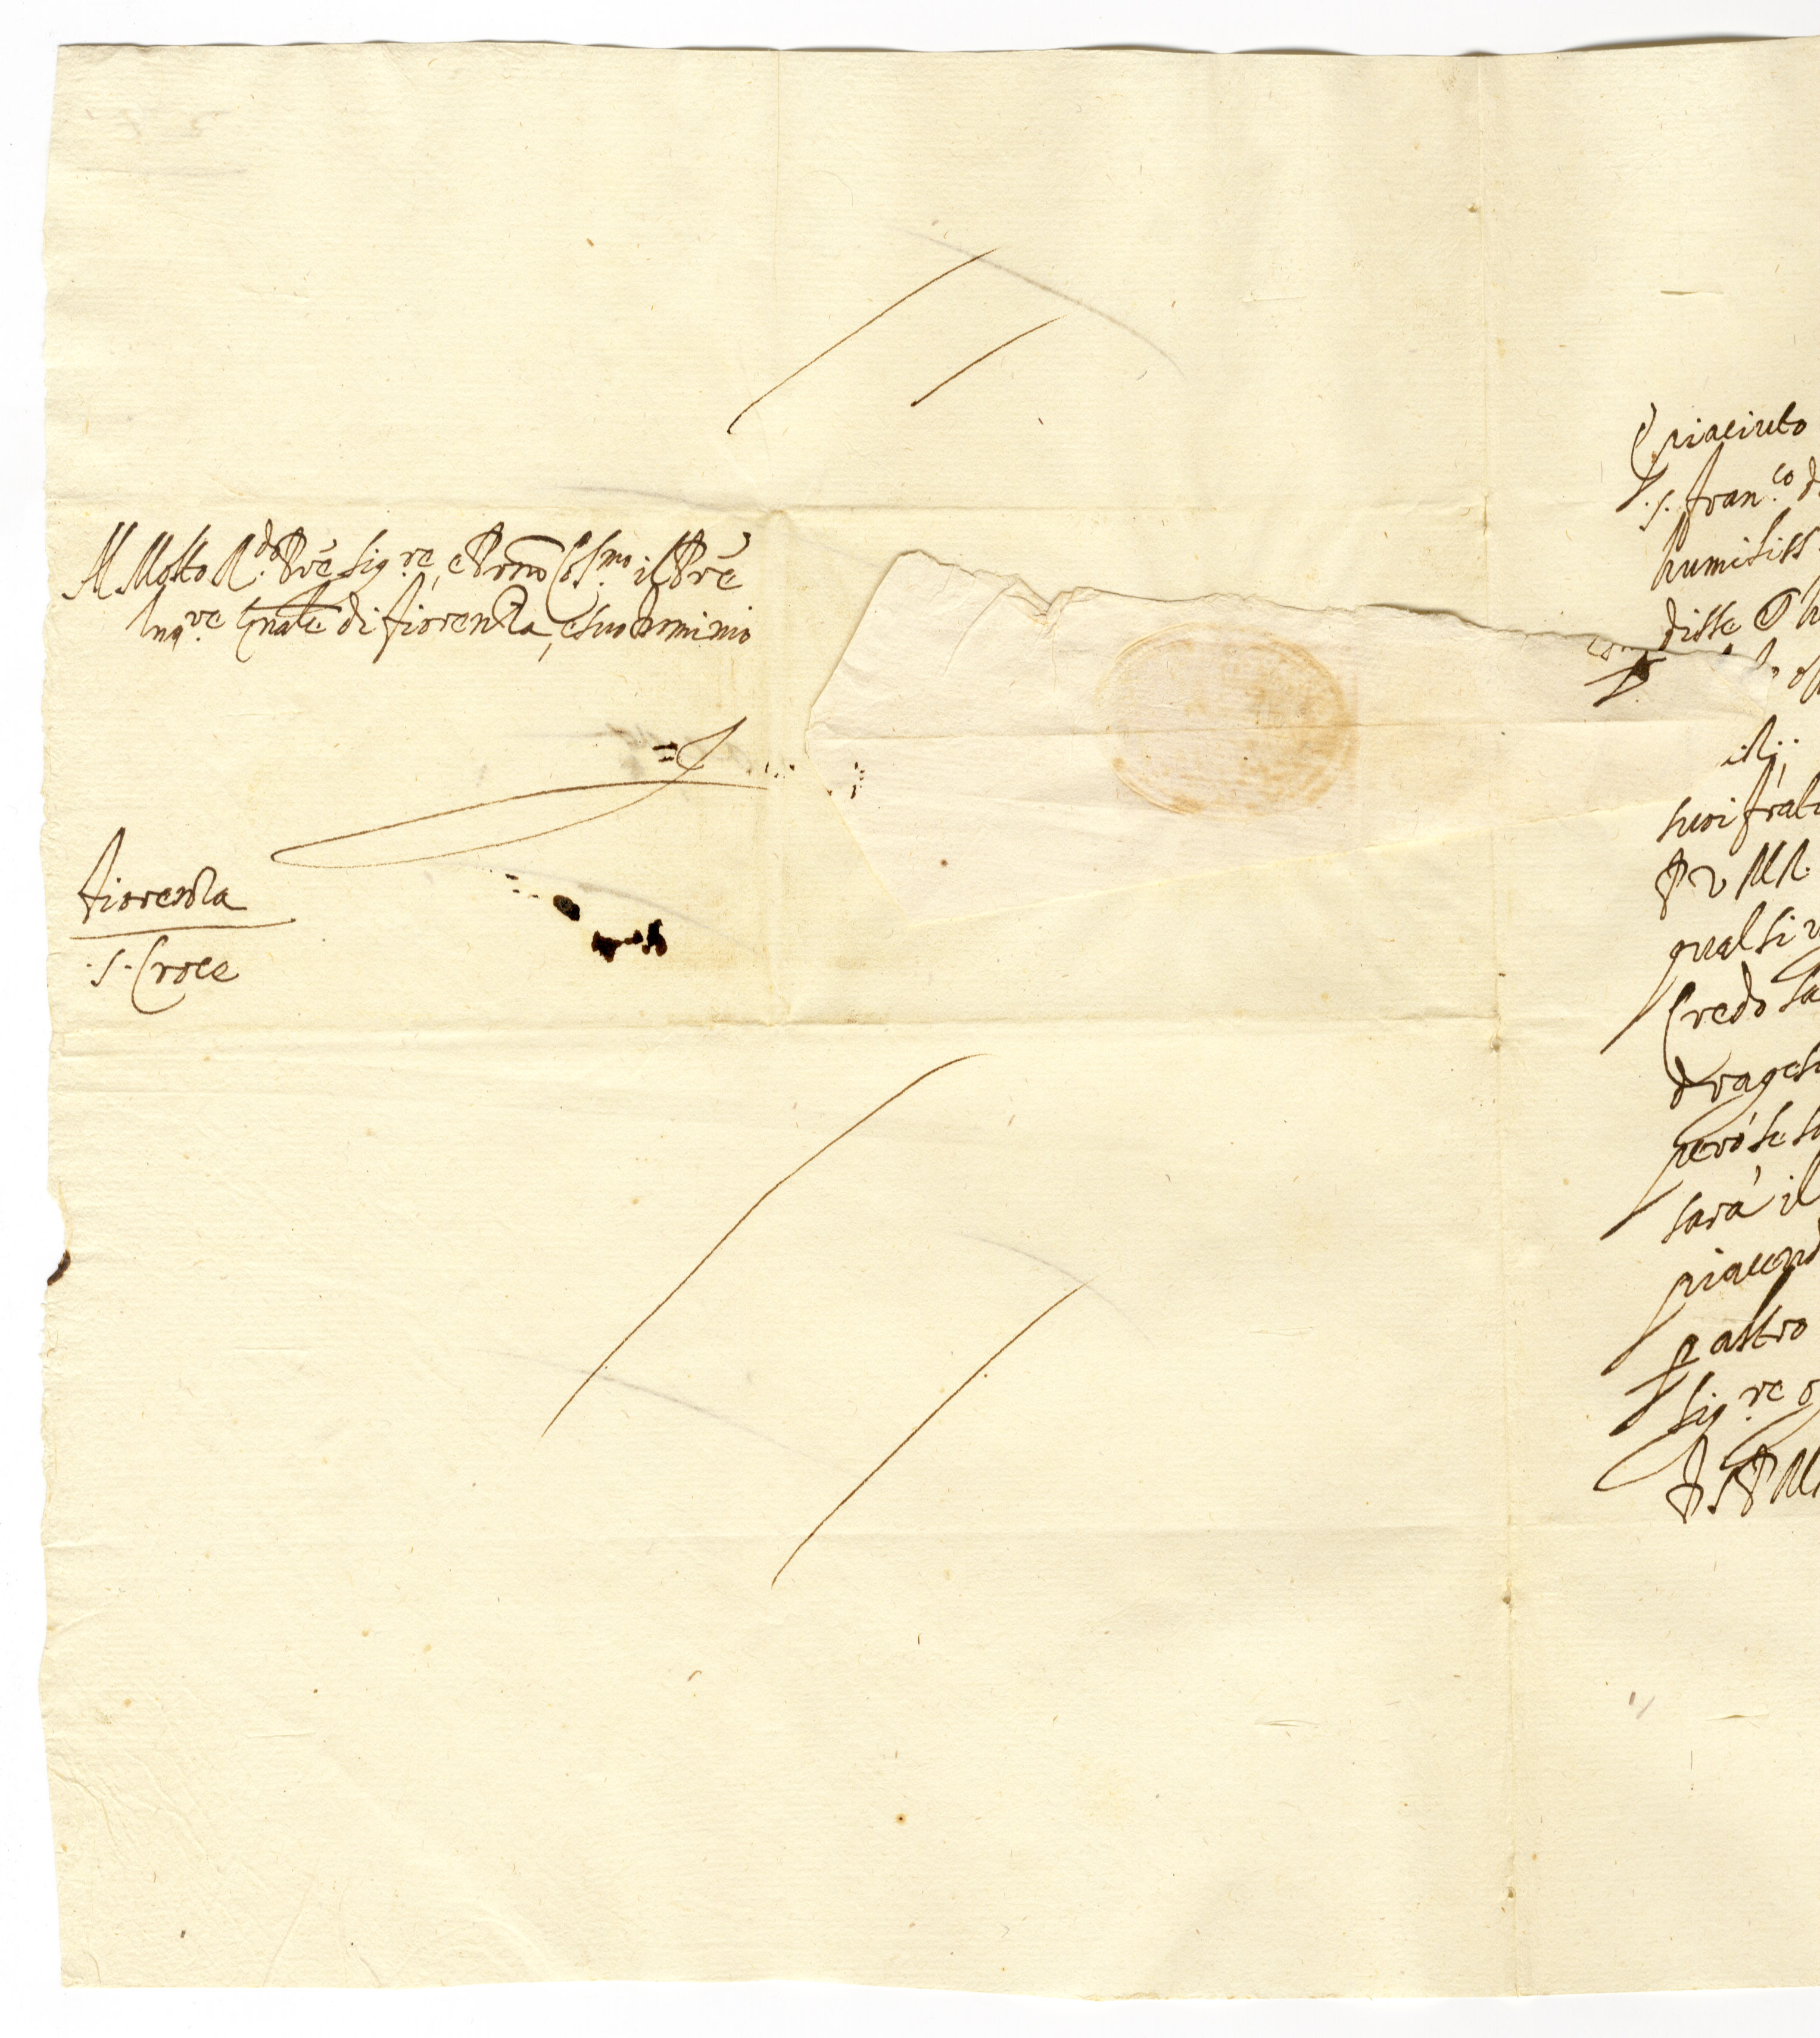 Al Molto R.do Prē Sig.re, e Prōn Col.mo il Prē
Inq.re Gnāle di fiorenza, e suo dominio
fiorenza
.S. Croce
piaciuto
.S. fran.co d
humiliss
disse
suoi frat
P V M R.
qualsi v
Credo sa
però se s
sarà il
piacend
p altro
Sig.re